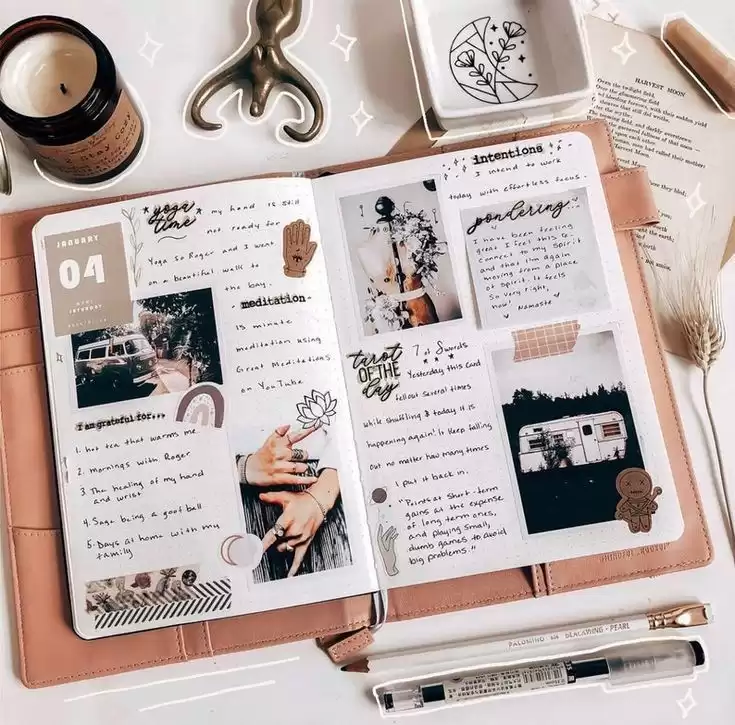 JANUARY
04
SATURDAY
yoga time
my hand is still
not ready for
Yoga so Roger and I went
on a beautiful walk to
the bay.
meditation
15 minute
meditation using
Great Meditations
on YouTube
I am grateful for...
1. hot tea that warms me
2. mornings with Roger
3. The healing of my hand
and wrist
4. Sage being a goof ball
5. Days at home with my
family
intentions
I intend to work
today with effortless focus.
pondering
I have been feeling
great. I feel this re-
connect to my spirit
and that I'm again
moving from a place
of spirit. It feels
so very right,
now. Namaste
tarot
OF THE
day
7 of Swords
Yesterday this card
fell out several times
while shuffling & today it is
happening again! It keep falling
out no matter how many times
I put it back in.
"Points at short-term
gains at the expense
of long term ones,
and playing small,
dumb games to avoid
big problems."
HARVEST MOON
PALOMINO BLACKWING PEARL